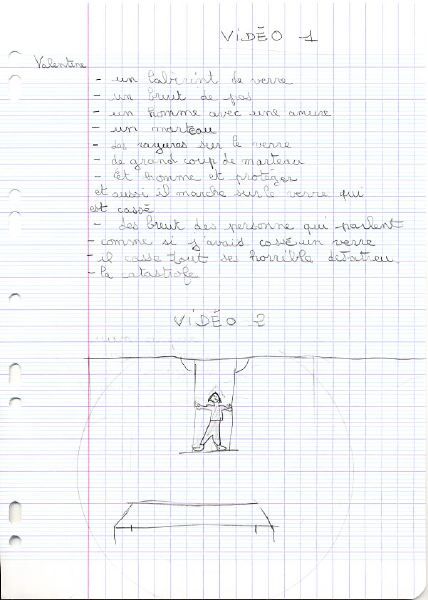 VIDÉO 1
Valentine
- un labirint de verre
- un bruit de pas
- un homme avec une amure
- un marteau
- des rayures sur le verre
- de grand coup de marteau
- Et l'homme et protéger
et aussi il marche sur le verre qui
est cassé
- des bruit des personne qui parlent
- comme si j'avais cassé un verre
- il casse tout ses horrible
- la catastrofe
VIDÉO 2